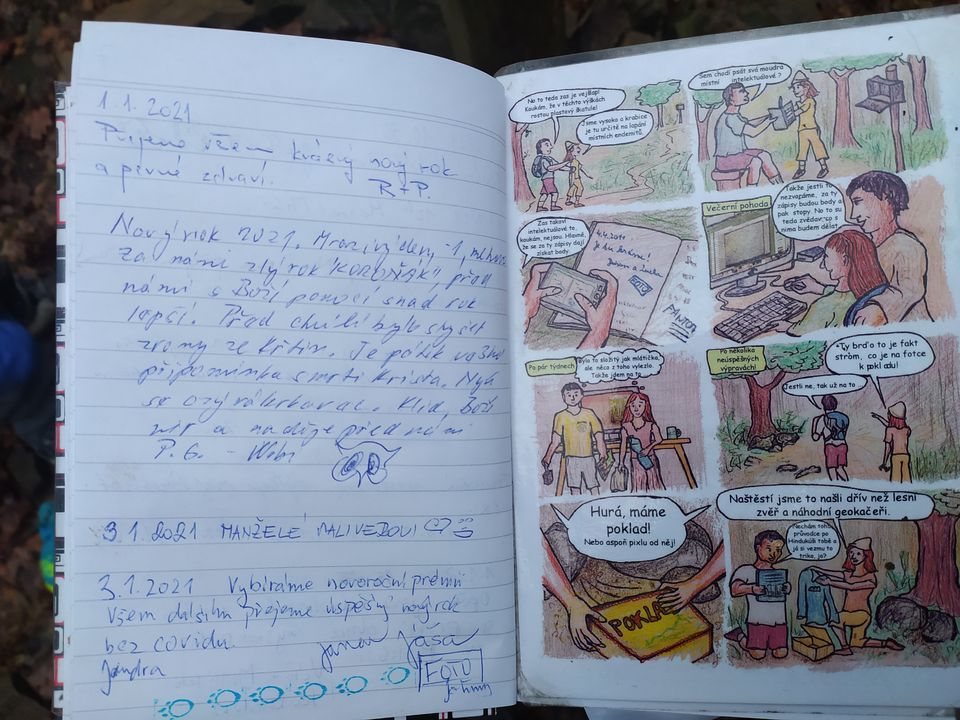 1.1.2021
Přejeme všem krásný nový rok
a pevné zdraví.
R+P.
Nový rok 2021. Mrazivý den, -1,
Za námi zlý rok "KOROŇÁK", před
námi s Boží pomocí snad rok
lepší. Před chvílí bylo slyšet
zvony ze Křtin. Je pátek
připomínka smrti Krista.
Klid, Boží
mír a naděje před námi
P. G. -
3.1.2021 MANŽELÉ
3.1.2021 Vybíráme novoroční prémii
Všem dalším přejeme úspěšný nový rok
bez covidu.
Jana Jáša
Jandra
FOTU
No to teda zas je vejšlap!
Koukám, že v těchto výškách
rostou plastový škatule!
Jsme vysoko a krabice
je tu určitě na lapání
místních endemitů.
Sem chodí psát svá moudra
místní intelektuálové ?
Zas takoví
intelektuálové to,
koukám, nejsou. Hlavně,
že se za ty zápisy dají
získat body.
4.4.2011
Je tu krásně!
PANTOR
Večerní pohoda
Takže jestli to
nezvoráme, za ty
zápisy budou body a
pak stopy. No to su
teda zvědav, co s
nima budem dělat.
Po pár týdnech
Bylo to složitý jak mlátička,
ale něco z toho vylezlo.
Takže jdem na to.
Po několika
neúspěšných
výpravách!
Jestli ne, tak už na to
"Ty brďo to je fakt
strom, co je na fotce
k pokladu!
Hurá, máme
poklad!
Nebo aspoň pixlu od něj!
POKLAD
Naštěstí jsme to našli dřív než lesní
zvěř a náhodní geokačeři.
Nechám toho
průvodce po
Hindukúši tobě a
já si vezmu to
triko, jo?